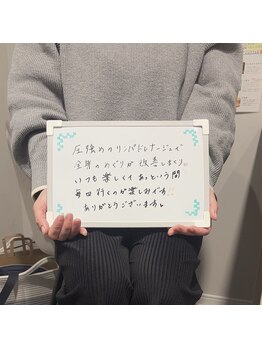 圧強めのリンパドレナージュで
全身のめぐりが改善しまくり♡
いつも楽しくてあっという間
毎回行くのが楽しみです!!
ありがとうございます♪